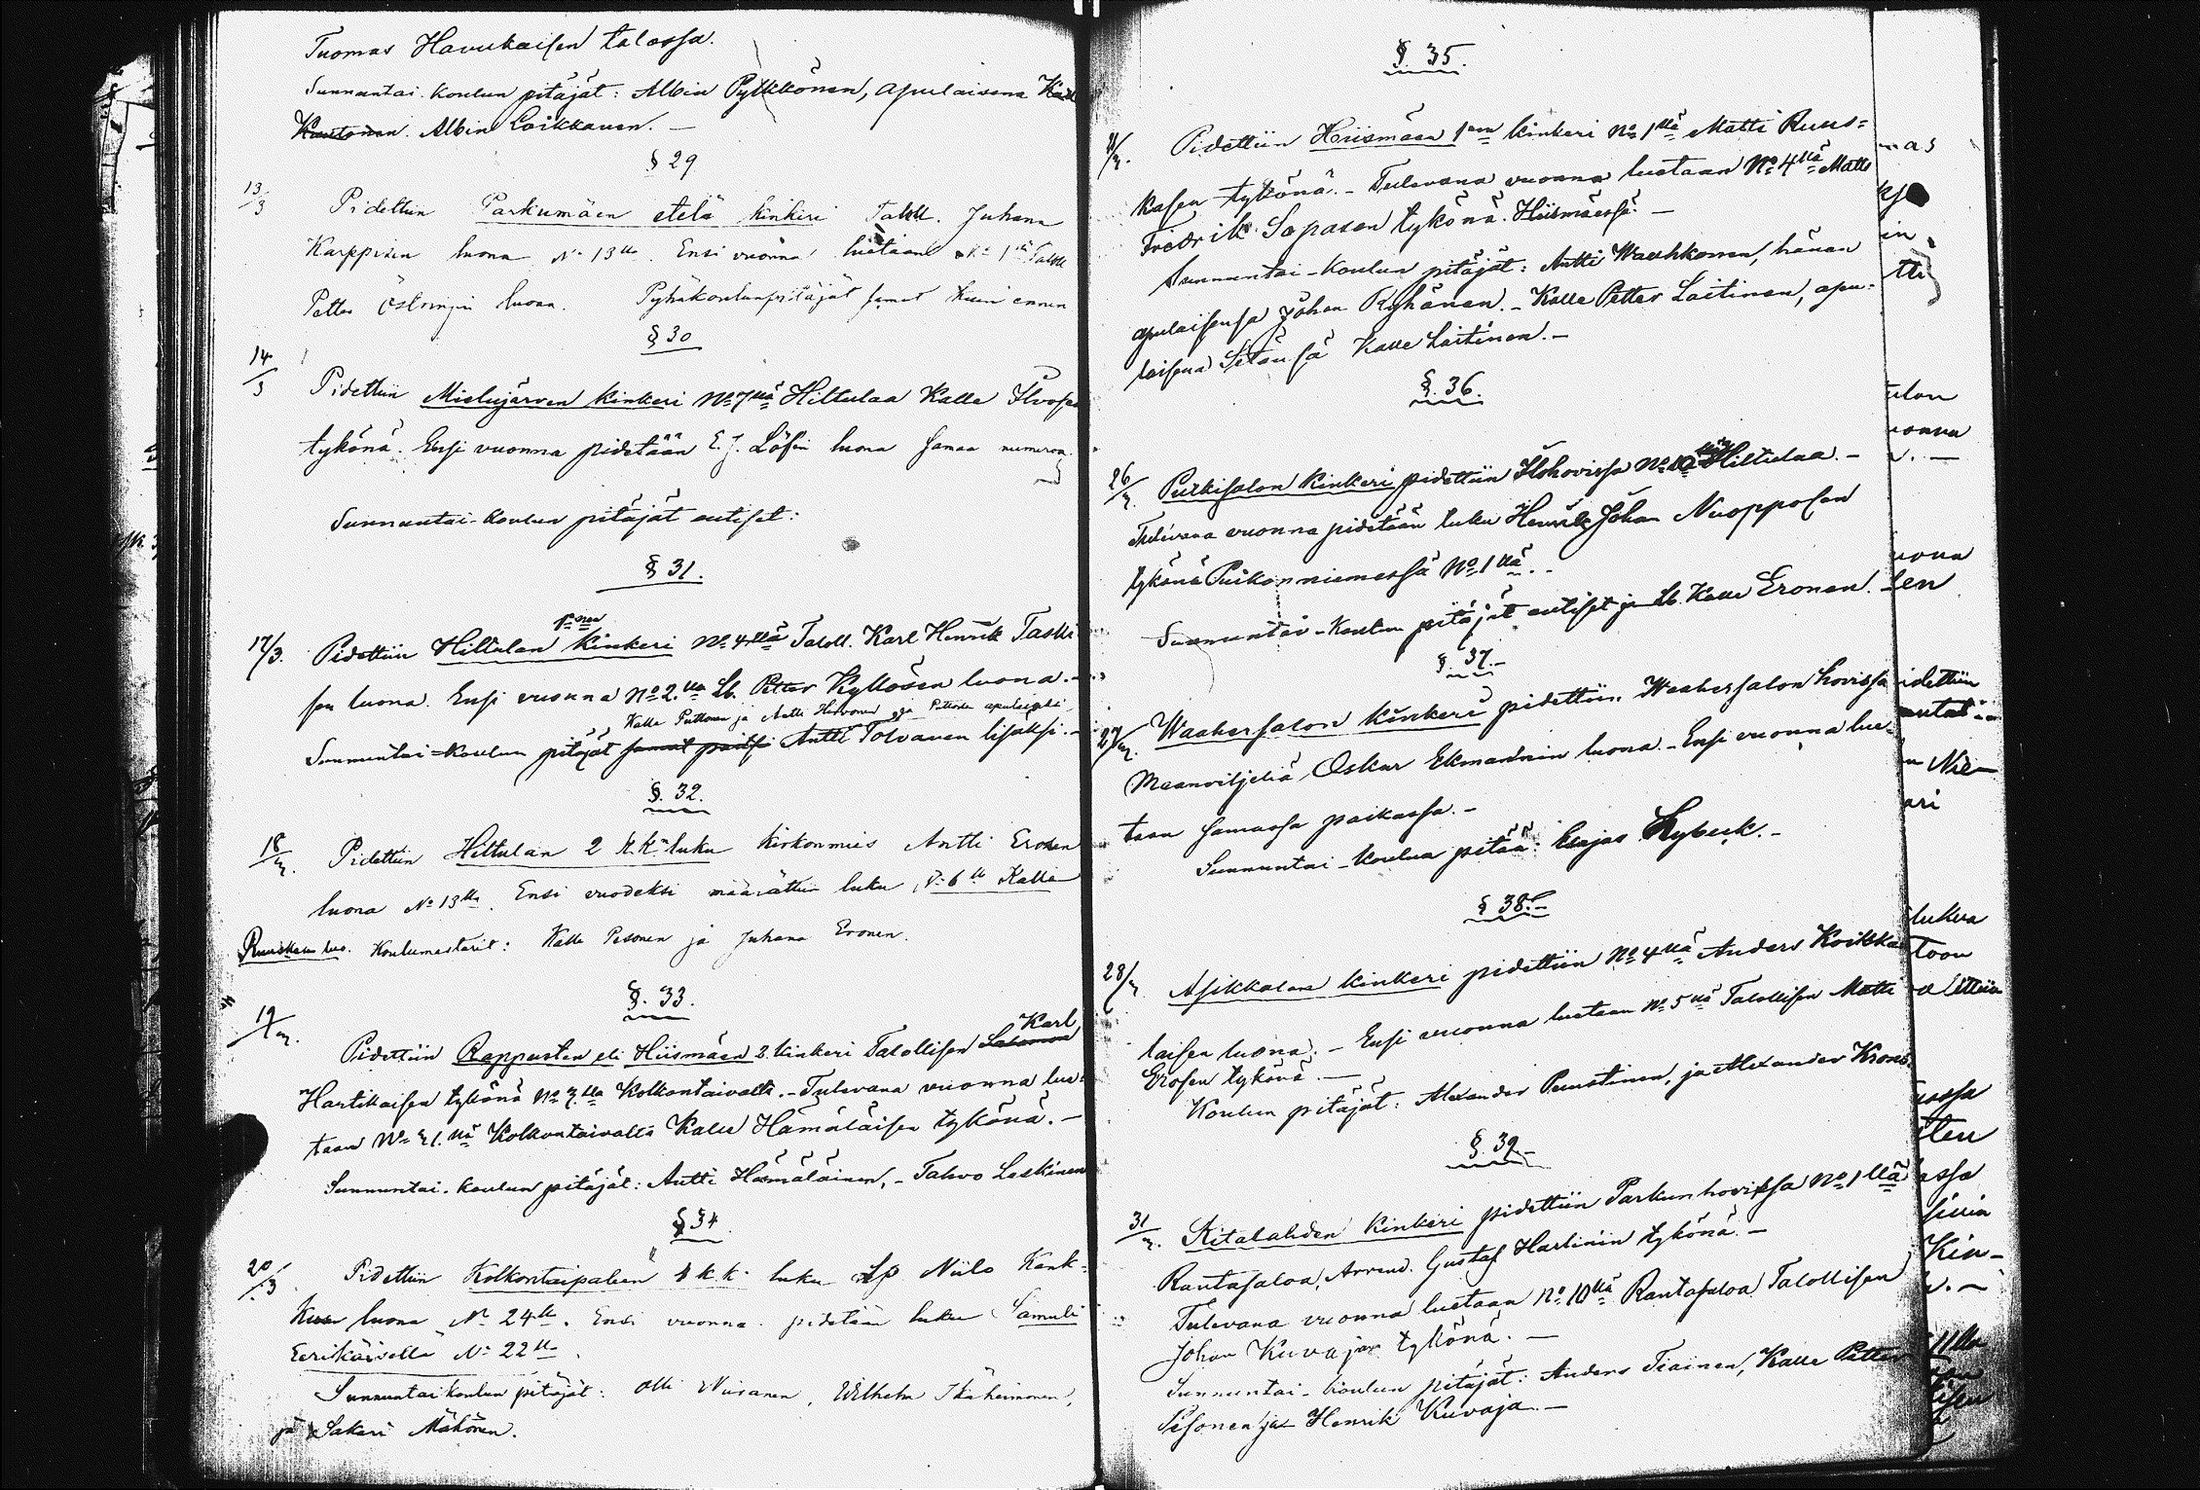 Tuomas Havukaisen talossa.
Sunnuntai-koulun pitäjät: Albin Pylkkönen, apulaisena
Albin Loikkanen. —
§ 29
13/3 Pidettiin Parkumäen etelä kinkeri Taloll. Juhana
Karppisen luona No 13lla. Ensi vuonna luetaan No 1llä Taloll
Petter Östringin luona. Pyhäkoulunpitäjät samat kuin ennen
§ 30
14/3 Pidettiin Mielujärven kinkeri No 7llä Hiltulaa Kalle Ilvosen
tykönä. Ensi vuonna pidetään E. J. Löfin luona samaa numeroa.
Sunnuntai-koulun pitäjät entiset:
§ 31.
17/3. Pidettiin Hiltulan 1nen kinkeri No 4llä Taloll. Karl Henrik Taski-
sen luona. Ensi vuonna No 2.lla Lb. Petter Kyllösen luona. —
Kalle Puttonen ja Antti Hirvonen ja apulaiseksi
Sunnuntai-koulun pitäjät samat paitsi Antti Tolvanen lisäksi. —
§. 32.
18/3. Pidettiin Hiltulan 2 k.k. luku kirkonmies Antti Erosen
luona No 13lla. Ensi vuodeksi määrättiin luku No 6lla Kalle
Ruuskasen luo. Koulumestarit: Kalle Pesonen ja Juhana Eronen.
§. 33.
19/3. Pidettiin Rappusten eli Hiismäen 2. kinkeri Talollisen Salomon Karl
Hartikaisen tykönä No 7.llä Kolkontaivalta. - Tulevana vuonna lue-
taan No 21.llä Kolkontaivalta Kalle Hämäläisen tykönä. —
Sunnuntai-koulun pitäjät: Antti Hämäläinen, - Tahvo Laskinen
§ 34
20/3. Pidettiin Kolkontaipaleen k.k. luku Lp Niilo Kank-
kusen luona No 24llä. Ensi vuonna pidetään luku Samuli
Eerikäisellä No 22lla.
Sunnuntaikoulun pitäjät: Olli Nuiranen, Wilhelm Ikäheimonen,
ja Sakari Mähönen.
§. 35.
Pidettiin Hiismäen 1sen kinkeri No 1llä Matti Ruus-
kasen tykönä. - Tulevana vuonna luetaan No 4llä Matts
Fredrik Sapasen tykönä Hiismäessä. —
Sunnuntai-koulun pitäjät: Antti Wauhkonen, hänen
apulaisensa Johan Ryhänen. - Kalle Petter Laitinen, apu-
laisena Setänsä Kalle Laitinen. —
§. 36.
26/3. Purkisalon kinkeri pidettiin Ilohovissa No 10llä Hiltulaa. —
Tulevana vuonna pidetään luku Henrik Johan Nuopposen
tykönä Puikonniemessä No 1llä.
Sunnuntai-koulun pitäjät entiset ja Lb. Kalle Eronen.
§. 37. —
27/3. Waahersalon kinkeri pidettiin Waahersalon hovissa
Maanviljeliä Oskar Ekmannin luona. - Ensi vuonna lue-
taan samassa paikassa. —
Sunnuntai-koulua pitää: Esajas Lybeck. —
§ 38. —
28/3. Asikkalan kinkeri pidettiin No 4llä Anders Koikka-
laisen luona. - Ensi vuonna luetaan No 5llä Talollisen Matti
Erosen tykönä. —
Koulun pitäjät: Alexander Puustinen, ja Alexander Krons.
§. 39. —
31/3. Kitalahden kinkeri pidettiin Parkunhovissa No 1llä
Rantasaloa, Arrend. Gustaf Harlinin tykönä. —
Tulevana vuonna luetaan No 10llä Rantasaloa Talollisen
Johan Kuvajan tykönä. —
Sunnuntai-koulun pitäjät: Anders Tiainen, Kalle Petter
Pesonen ja Henrik Kuvaja. —